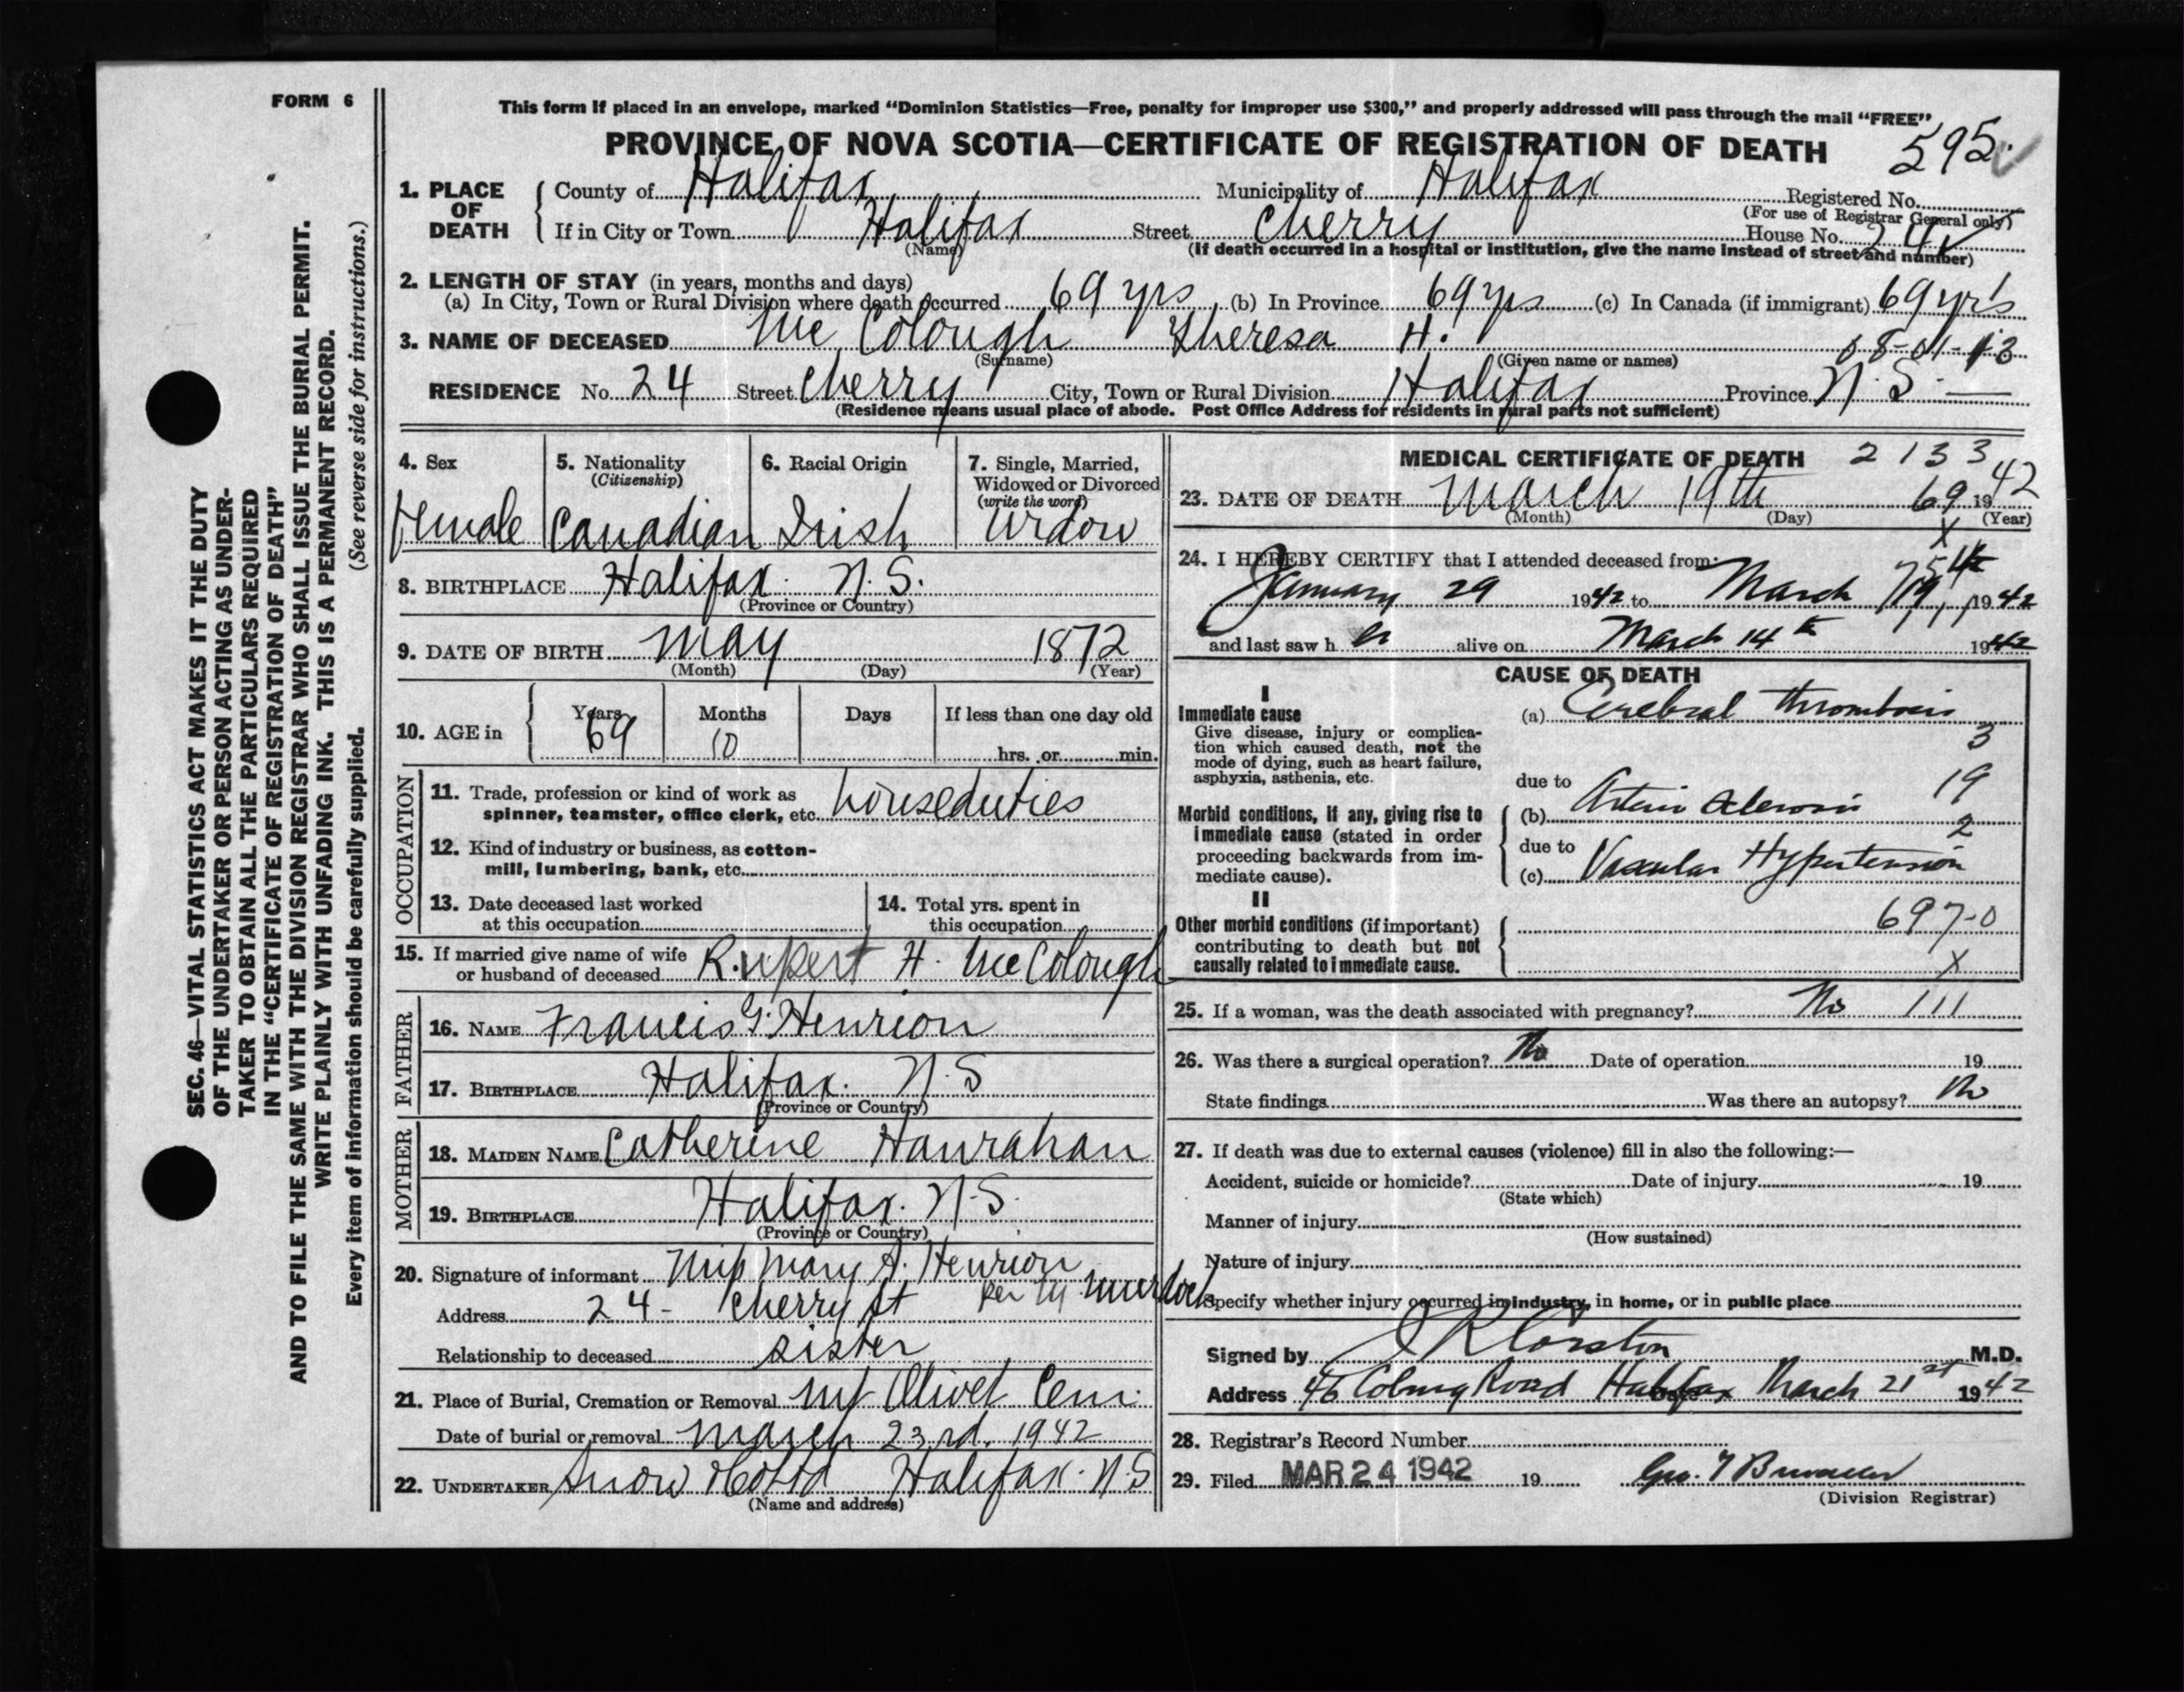 FORM 6
This form if placed in an envelope, marked “Dominion Statistics—Free, penalty for improper use $300,” and properly addressed will pass through the mail “FREE”
PROVINCE OF NOVA SCOTIA—CERTIFICATE OF REGISTRATION OF DEATH
595.
1. PLACE OF DEATH
County of Halifax Municipality of Halifax Registered No.
(For use of Registrar General only)
If in City or Town Halifax Street Cherry House No. 24
(Name) (If death occurred in a hospital or institution, give the name instead of street and number)
2. LENGTH OF STAY (in years, months and days)
(a) In City, Town or Rural Division where death occurred 69 yrs (b) In Province 69 yrs (c) In Canada (if immigrant) 69 yrs
3. NAME OF DECEASED Mc Colough Theresa H.
(Surname) (Given name or names)
RESIDENCE No. 24 Street Cherry City, Town or Rural Division Halifax Province N.S.
(Residence means usual place of abode. Post Office Address for residents in rural parts not sufficient)
4. Sex
Female
5. Nationality
(Citizenship)
Canadian
6. Racial Origin
Irish
7. Single, Married,
Widowed or Divorced
(write the word)
Widow
8. BIRTHPLACE Halifax. N.S.
(Province or Country)
9. DATE OF BIRTH May 1872
(Month) (Day) (Year)
10. AGE in
Years Months Days If less than one day old
69 10
hrs. or min.
OCCUPATION
11. Trade, profession or kind of work as
spinner, teamster, office clerk, etc. houseduties
12. Kind of industry or business, as cotton-
mill, lumbering, bank, etc.
13. Date deceased last worked
at this occupation
14. Total yrs. spent in
this occupation
15. If married give name of wife
or husband of deceased Rupert H. McColough
FATHER
16. NAME Francis G. Henrion
17. BIRTHPLACE Halifax. N.S
(Province or Country)
MOTHER
18. MAIDEN NAME Catherine Hanrahan
19. BIRTHPLACE Halifax. N.S.
(Province or Country)
20. Signature of informant Miss Mary A. Henrion
Per M. Murdoch
Address 24 - Cherry St
Relationship to deceased sister
21. Place of Burial, Cremation or Removal Mt Olivet Cem.
Date of burial or removal March 23rd. 1942
22. UNDERTAKER Snow & Co Ltd Halifax. N.S
(Name and address)
MEDICAL CERTIFICATE OF DEATH 2133
23. DATE OF DEATH March 19th 1942
(Month) (Day) (Year)
69
X
24. I HEREBY CERTIFY that I attended deceased from:
January 29 1942 to March 19, 1942
and last saw her alive on March 14th 1942
CAUSE OF DEATH
I
Immediate cause
Give disease, injury or complica-
tion which caused death, not the
mode of dying, such as heart failure,
asphyxia, asthenia, etc.
(a) Cerebral thrombosis
3
due to
19
Morbid conditions, if any, giving rise to
immediate cause (stated in order
proceeding backwards from im-
mediate cause).
(b) Arterio sclerosis
2
due to
(c) Vascular Hypertension
II
Other morbid conditions (if important)
contributing to death but not
causally related to immediate cause.
697-0
X
25. If a woman, was the death associated with pregnancy? No 111
26. Was there a surgical operation? No Date of operation 19
State findings Was there an autopsy? No
27. If death was due to external causes (violence) fill in also the following:—
Accident, suicide or homicide? Date of injury 19
(State which)
Manner of injury
(How sustained)
Nature of injury
Specify whether injury occurred in industry, in home, or in public place
Signed by J R Corston M.D.
Address 46 Coburg Road Halifax March 21st 1942
28. Registrar's Record Number
29. Filed MAR 24 1942 19
(Division Registrar)
SEC. 46—VITAL STATISTICS ACT MAKES IT THE DUTY
OF THE UNDERTAKER OR PERSON ACTING AS UNDER-
TAKER TO OBTAIN ALL THE PARTICULARS REQUIRED
IN THE “CERTIFICATE OF REGISTRATION OF DEATH”
AND TO FILE THE SAME WITH THE DIVISION REGISTRAR WHO SHALL ISSUE THE BURIAL PERMIT.
WRITE PLAINLY WITH UNFADING INK. THIS IS A PERMANENT RECORD.
Every item of information should be carefully supplied. (See reverse side for instructions.)